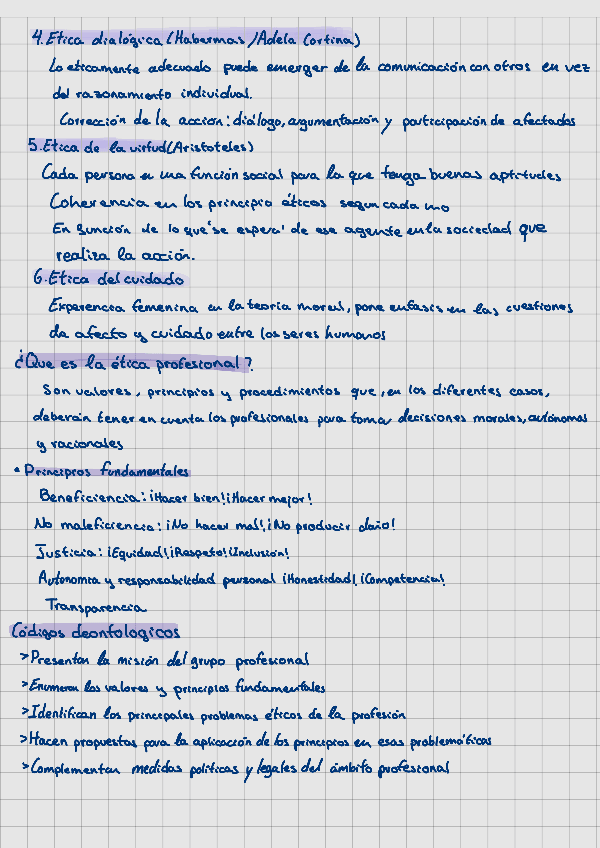 4. Etica dialógica (Habermas / Adela Cortina)
Lo eticamente adecuado puede emerger de la comunicación con otros en vez
del razonamiento individual.
Corrección de la acción: diálogo, argumentación y participación de afectados
5. Etica de la virtud (Aristoteles)
Cada persona en una función social para la que tenga buenas aptitudes
Coherencia en los principio éticos segun cada uno
En función de lo que 'se espera' de ese agente en la sociedad que
realiza la acción.
6. Etica del cuidado
Experiencia femenina en la teoria moral, pone enfasis en las cuestiones
de afecto y cuidado entre los seres humanos
¿Que es la ética profesional?
Son valores, principios y procedimientos que, en los diferentes casos,
deberán tener en cuenta los profesionales para tomar decisiones morales, autónomas
y racionales
• Principios fundamentales
Beneficiencia: ¡Hacer bien! ¡Hacer mejor!
No maleficiencia: ¡No hacer mal! ¡No producir daño!
Justicia: ¡Equidad! ¡Respeto! ¡Inclusión!
Autonomia y responsabilidad personal ¡Honestidad! ¡Competencia!
Transparencia
Códigos deontologicos
> Presentan la misión del grupo profesional
> Enumeran los valores y principios fundamentales
> Identifican los principales problemas éticos de la profesión
> Hacen propuestas para la aplicación de los principios en esas problemáticas
> Complementan medidas politicas y legales del ámbito profesional